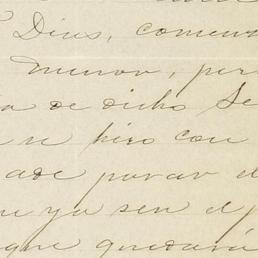 Dios, comenz
menor, per
a de dicho Se
n se hizo con
ade parar el
u ya sea el p
que quedará